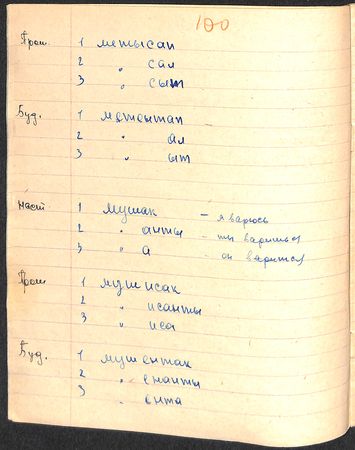 100
Прош. 1 метысап
2 " сал
3 " сыт
Буд. 1 метентап
2 " ал
3 " ыт
Наст 1 мушак – я варюсь
2 " анты – ты варишься
3 " а – он варится
Прош 1 мушисак
2 " исанты
3 " иса
Буд. 1 мушентак
2 " енанты
3 " ента